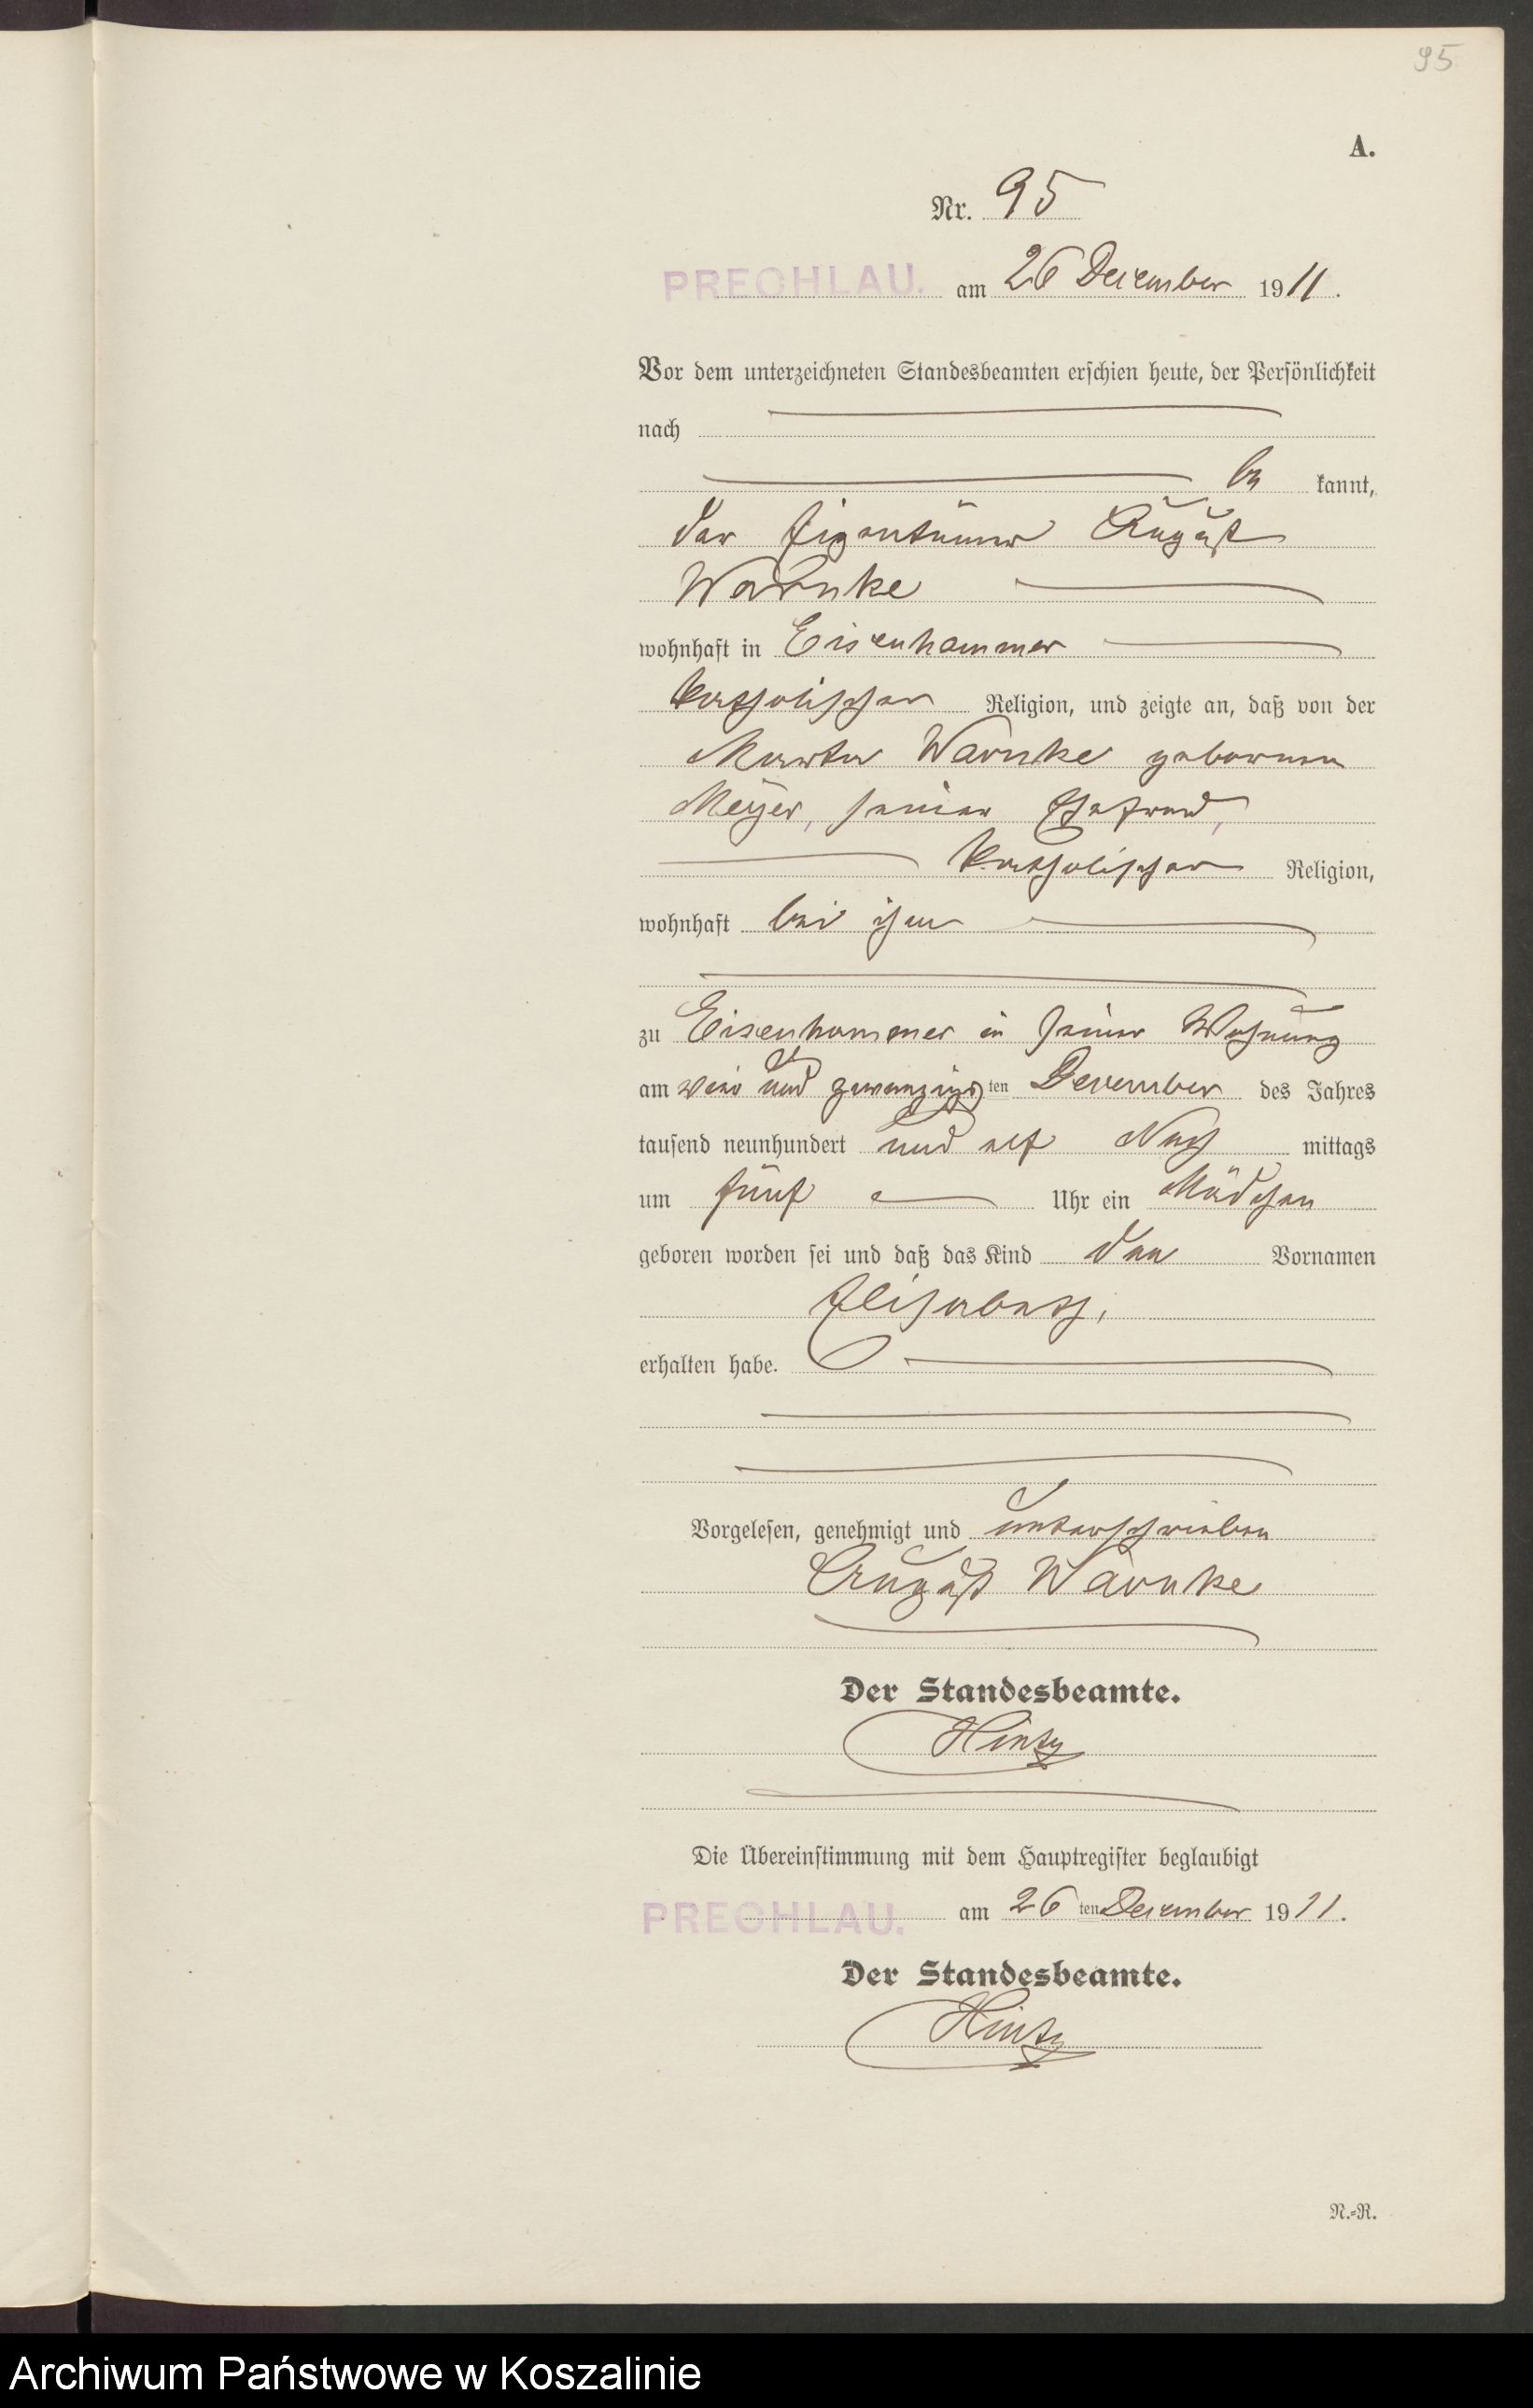 95
A.
Nr. 95
PRECHLAU. am 26 December 1911.
Vor dem unterzeichneten Standesbeamten erschien heute, der Persönlichkeit
nach
be kannt,
der Eigentümer August
Warnke
wohnhaft in Eisenhammer
katholischer Religion, und zeigte an, daß von der
Martha Warnke geborenen
Meyer, seiner Ehefrau,
katholischer Religion,
wohnhaft bei ihm
zu Eisenhammer in seiner Wohnung
am und zwanzigsten December des Jahres
tausend neunhundert und elf Nach mittags
um fünf Uhr ein Mädchen
geboren worden sei und daß das Kind den Vornamen
Elisabeth,
erhalten habe.
Vorgelesen, genehmigt und unterschrieben
August Warnke
Der Standesbeamte.
Hintz
Die Übereinstimmung mit dem Hauptregister beglaubigt
PRECHLAU. am 26 ten December 1911.
Der Standesbeamte.
Hintz
N.-R.
Archiwum Państwowe w Koszalinie